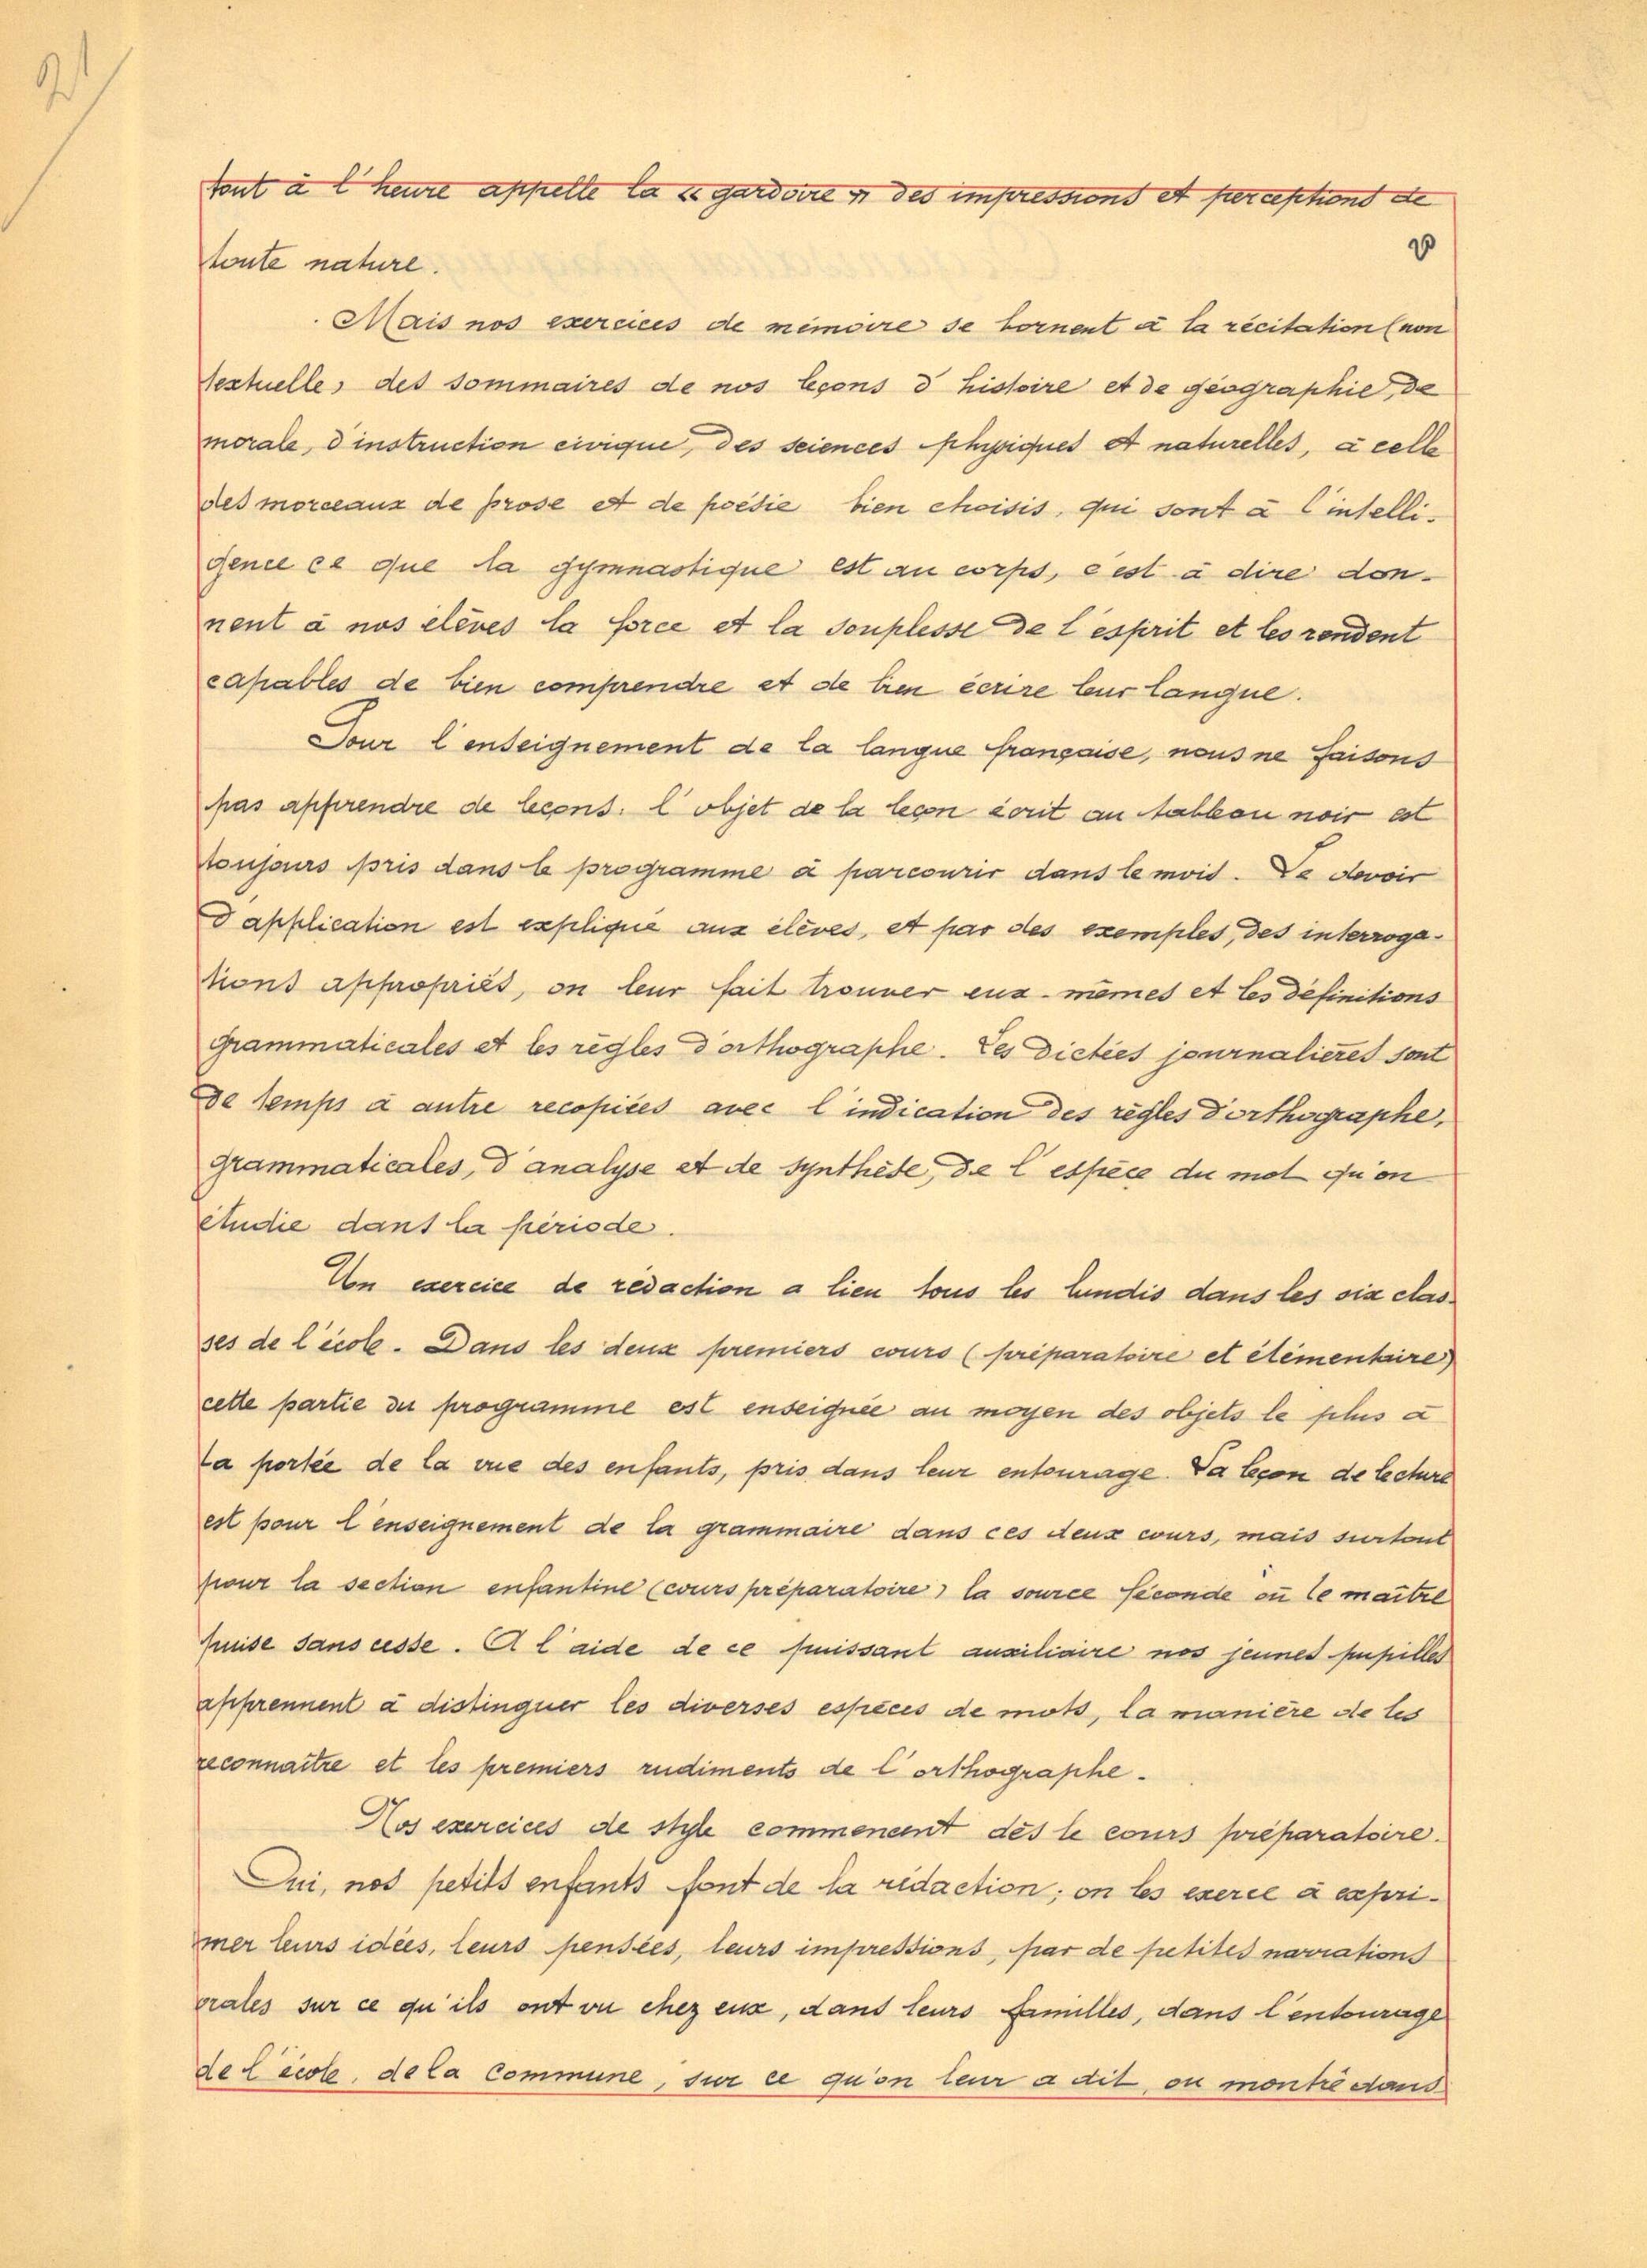 tout à l'heure appelle la « gardoire » des impressions et perceptions de
toute nature.
Mais nos exercices de mémoire se bornent à la récitation (non
textuelle) des sommaires de nos leçons d'histoire et de géographie, de
morale, d'instruction civique, des sciences physiques et naturelles, à celle
des morceaux de prose et de poésie bien choisis, qui sont à l'intelli-
gence ce que la gymnastique est au corps, c'est à dire don-
nent à nos élèves la force et la souplesse de l'esprit et les rendent
capables de bien comprendre et de bien écrire leur langue.
Pour l'enseignement de la langue française, nous ne faisons
pas apprendre de leçons: l'objet de la leçon écrit au tableau noir est
toujours pris dans le programme à parcourir dans le mois. Le devoir
d'application est expliqué aux élèves, et par des exemples, des interroga-
tions appropriés, on leur fait trouver eux-mêmes et les définitions
grammaticales et les règles d'orthographe. Les dictées journalières sont
de temps à autre recopiées avec l'indication des règles d'orthographe,
grammaticales, d'analyse et de synthèse, de l'espèce du mot qu'on
étudie dans la période.
Un exercice de rédaction a lieu tous les lundis dans les six clas-
ses de l'école. Dans les deux premiers cours (préparatoire et élémentaire)
cette partie du programme est enseignée au moyen des objets le plus à
la portée de la vue des enfants, pris dans leur entourage. La leçon de lecture
est pour l'enseignement de la grammaire dans ces deux cours, mais surtout
pour la section enfantine (cours préparatoire) la source féconde où le maître
puise sans cesse. A l'aide de ce puissant auxiliaire nos jeunes pupilles
apprennent à distinguer les diverses espèces de mots, la manière de les
reconnaître et les premiers rudiments de l'orthographe.
Nos exercices de style commencent dès le cours préparatoire.
Oui, nos petits enfants font de la rédaction; on les exerce à expri-
mer leurs idées, leurs pensées, leurs impressions, par de petites narrations
orales sur ce qu'ils ont vu chez eux, dans leurs familles, dans l'entourage
de l'école, de la commune, sur ce qu'on leur a dit, ou montré dans